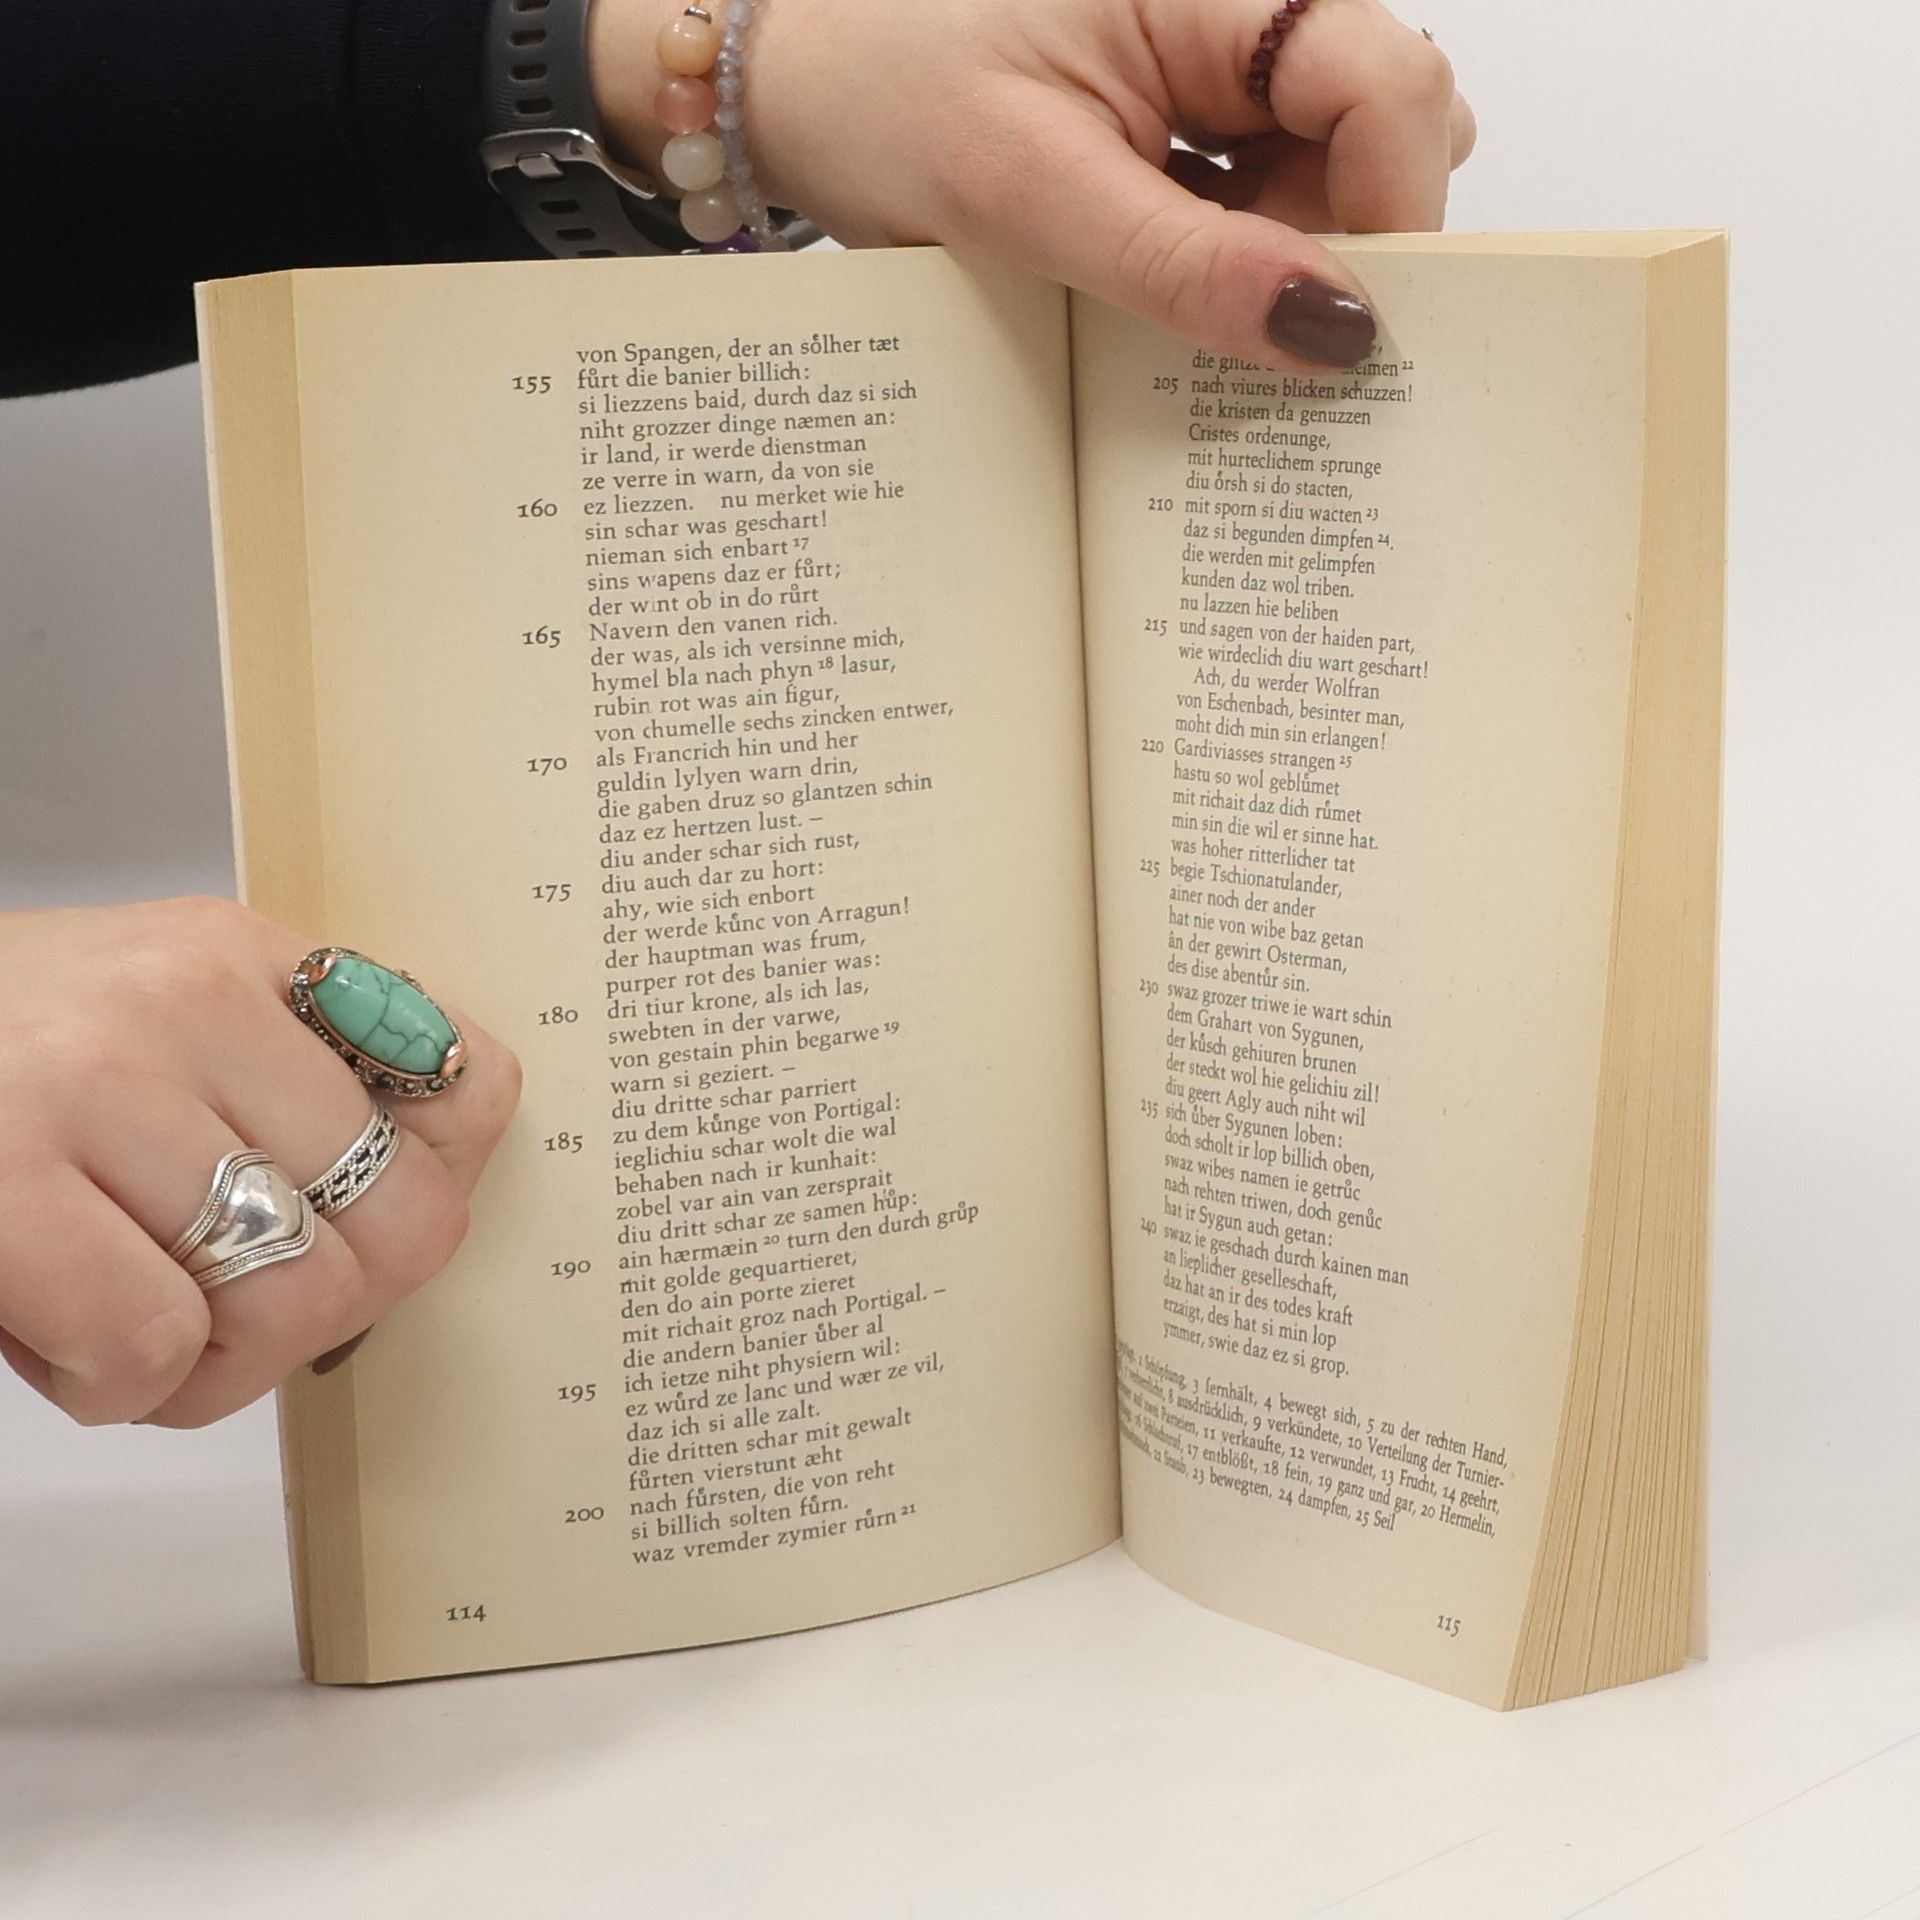 von Spangen, der an soͤlher tæt
155 fuͤrt die banier billich:
si liezzens baid, durch daz si sich
niht grozzer dinge næmen an:
ir land, ir werde dienstman
ze verre in warn, da von sie
160 ez liezzen. nu merket wie hie
sin schar was geschart!
nieman sich enbart 17
sins wapens daz er fuͤrt;
der wint ob in do ruͤrt
165 Navern den vanen rich.
der was, als ich versinne mich,
hymel bla nach phyn 18 lasur,
rubin rot was ain figur,
von chumelle sechs zincken entwer,
170 als Francrich hin und her
guldin lylyen warn drin,
die gaben druz so glantzen schin
daz ez hertzen lust. –
diu ander schar sich rust,
175 diu auch dar zu hort:
ahy, wie sich enbort
der werde kuͤnc von Arragun!
der hauptman was frum,
purper rot des banier was:
180 dri tiur krone, als ich las,
swebten in der varwe,
von gestain phin begarwe 19
warn si geziert. –
diu dritte schar parriert
185 zu dem kuͤnge von Portigal:
ieglichiu schar wolt die wal
behaben nach ir kunhait:
zobel var ain van zersprait
diu dritt schar ze samen huͤp:
190 ain hærmæin 20 turn den durch gruͤp
mit golde gequartieret,
den do ain porte zieret
mit richait groz nach Portigal. –
die andern banier uͤber al
195 ich ietze niht physiern wil:
ez wuͤrd ze lanc und wær ze vil,
daz ich si alle zalt.
die dritten schar mit gewalt
fuͤrten vierstunt æht
200 nach fuͤrsten, die von reht
si billich solten fuͤrn.
waz vremder zymier ruͤrn 21
114
die 22
205 nach viures blicken schuzzen!
die kristen da genuzzen
Cristes ordenunge,
mit hurteclichem sprunge
diu oͤrsh si do stacten,
210 mit sporn si diu wacten 23
daz si begunden dimpfen 24.
die werden mit gelimpfen
kunden daz wol triben.
nu lazzen hie beliben
215 und sagen von der haiden part,
wie wirdeclich diu wart geschart!
Ach, du werder Wolfran
von Eschenbach, besinter man,
moht dich min sin erlangen!
220 Gardiviasses strangen 25
hastu so wol gebluͤmet
mit richait daz dich ruͤmet
min sin die wil er sinne hat.
was hoher ritterlicher tat
225 begie Tschionatulander,
ainer noch der ander
hat nie von wibe baz getan
ân der gewirt Osterman,
des dise abentuͤr sin.
230 swaz grozer triwe ie wart schin
dem Grahart von Sygunen,
der kuͤsch gehiuren brunen
der steckt wol hie gelichiu zil!
diu geert Agly auch niht wil
235 sich uͤber Sygunen loben:
doch scholt ir lop billich oben,
swaz wibes namen ie getruͤc
nach rehten triwen, doch genuͤc
hat ir Sygun auch getan:
240 swaz ie geschach durch kainen man
an lieplicher geselleschaft,
daz hat an ir des todes kraft
erzaigt, des hat si min lop
ymmer, swie daz ez si grop.
Schöpfung, 3 fernhält, 4 bewegt sich, 5 zu der rechten Hand,
7 verherrlicht, 8 ausdrücklich, 9 verkündete, 10 Verteilung der Turnier-
auf zwei Parteien, 11 verkaufte, 12 verwundet, 13 Frucht, 14 geehrt,
16 Schlachtruf, 17 entblößt, 18 fein, 19 ganz und gar, 20 Hermelin,
22 Staub, 23 bewegten, 24 dampfen, 25 Seil
115